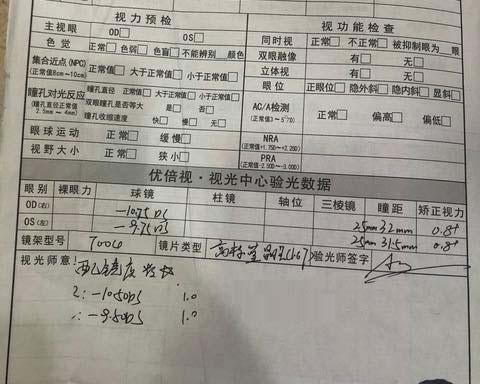 视力预检 视功能检查
主视眼 OD□ OS□ 同时视 正常□ 不正常□ 被抑制眼为__眼
色觉 正常□ 色弱□ 色盲□ 不能辨别__颜色 双眼融像 有□ 无□
集合近点(NPC) (正常值8cm~10cm) 正常值□ 大于正常值□ 小于正常值□ 立体视 有□ 无□
瞳孔对光反应 瞳孔直径 正常值□ 大于正常值□ 小于正常值□ 眼位 正眼位□ 隐外斜□ 隐内斜□ 显斜□
瞳孔直径正常值 2.5mm~4mm) 双眼瞳孔是否等大 是□ 否□ AC/A检测 正常□ 偏高□ 偏低□
瞳孔收缩速度 快□ 慢□ 无□ (正常值3~5°/D)
眼球运动 正常□ 缓慢□ NRA (正常值+1.75D~+2.25D)
视野大小 正常□ 狭小□ PRA (正常值-2.50D~-3.00D)
优倍视·视光中心验光数据
眼别 裸眼力 球镜 柱镜 轴位 三棱镜 瞳距 矫正视力
OD(右) -10.75 DS 25mm 32mm 0.8+
OS(左) -9.75 DS 25mm 31.5mm 0.8+
镜架型号 T004 镜片类型 验光师签字
视光师意:
-10.50DS 1.0
-9.50DS 1.0